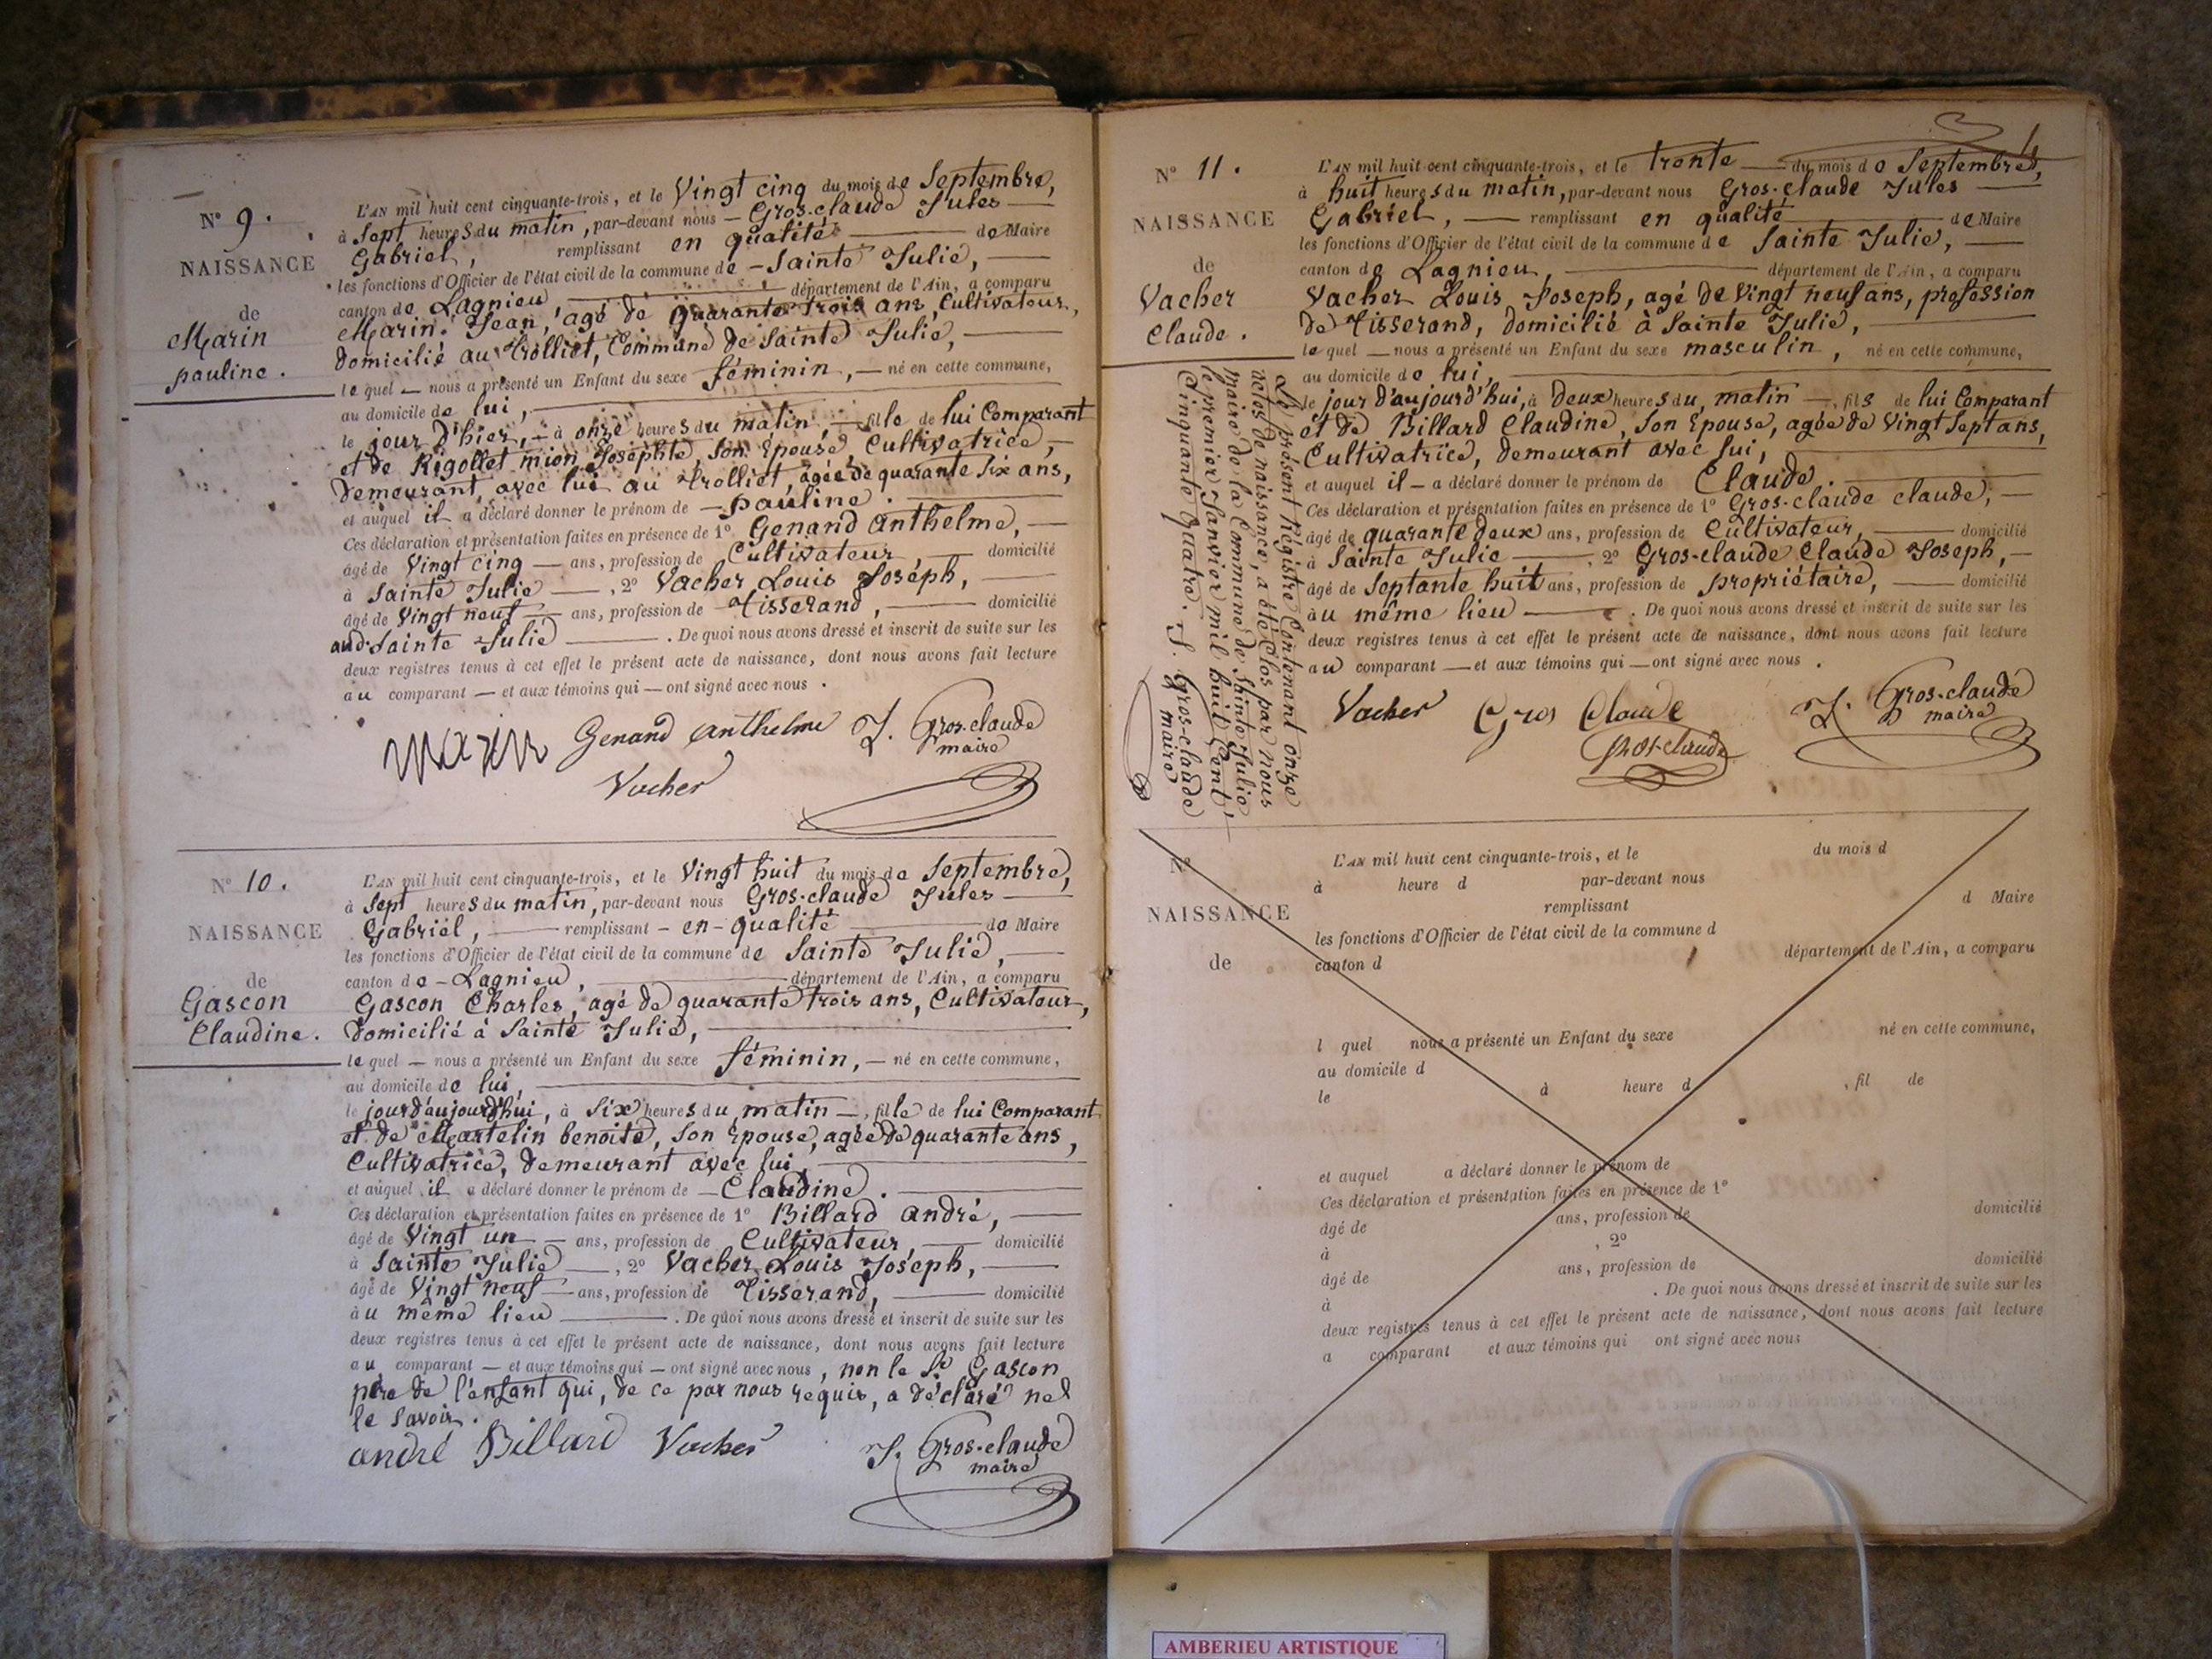 N° 9.
NAISSANCE
de
Marin
pauline.
L'AN mil huit cent cinquante-trois, et le Vingt cinq du mois de Septembre,
à Sept heures du matin, par-devant nous - Gros-claude Jules
Gabriel, remplissant en qualité de Maire
les fonctions d'Officier de l'état civil de la commune de - Sainte Julie,
canton de Lagnieu, département de l'Ain, a comparu
Marin Jean, agé de quarante trois ans, Cultivateur,
domicilié au trolliet, Commune de Sainte Julie,
lequel - nous a présenté un Enfant du sexe féminin, - né en cette commune,
au domicile de lui,
le jour d'hier, - à onze heures du matin -, fille de lui Comparant
et de Rigollet mion Josephte, Son Epouse, Cultivatrice, -
demeurant, avec lui au trolliet, agée de quarante six ans,
et auquel il a déclaré donner le prénom de - pauline.
Ces déclaration et présentation faites en présence de 1° Genand anthelme,
âgé de Vingt cinq - ans, profession de Cultivateur domicilié
à Sainte Julie, 2° Vacher Louis Joseph,
âgé de Vingt neuf - ans, profession de Tisserand, domicilié
aud. Sainte Julie. De quoi nous avons dressé et inscrit de suite sur les
deux registres tenus à cet effet le présent acte de naissance, dont nous avons fait lecture
au comparant - et aux témoins qui - ont signé avec nous.
Marin Genand anthelme J. Gros-claude
maire
Vacher
N° 10.
NAISSANCE
de
Gascon
Claudine.
L'AN mil huit cent cinquante-trois, et le Vingt huit du mois de Septembre,
à Sept heures du matin, par-devant nous Gros-claude Jules
Gabriel, remplissant - en - qualité de Maire
les fonctions d'Officier de l'état civil de la commune de Sainte Julie,
canton de - Lagnieu, département de l'Ain, a comparu
Gascon Charles, agé de quarante trois ans, Cultivateur,
domicilié à Sainte Julie,
lequel - nous a présenté un Enfant du sexe féminin, - né en cette commune,
au domicile de lui,
le jour d'aujourd'hui, à Six heures du matin -, fille de lui Comparant
et de Martelin benoite, Son Epouse, agée de quarante ans,
Cultivatrice, demeurant avec lui,
et auquel il a déclaré donner le prénom de - Claudine.
Ces déclaration et présentation faites en présence de 1° Billard andré,
âgé de Vingt un - ans, profession de Cultivateur, domicilié
à Sainte Julie, 2° Vacher Louis Joseph,
âgé de Vingt neuf - ans, profession de Tisserand, domicilié
au même lieu. De quoi nous avons dressé et inscrit de suite sur les
deux registres tenus à cet effet le présent acte de naissance, dont nous avons fait lecture
au comparant - et aux témoins qui - ont signé avec nous, non le Sr Gascon
père de l'enfant qui, de ce par nous requis, a déclaré ne
le savoir.
andré Billard Vacher J. Gros-claude
maire
N° 11.
NAISSANCE
de
Vacher
Claude.
L'AN mil huit cent cinquante-trois, et le trente du mois de Septembre,
à huit heures du matin, par-devant nous Gros-claude Jules
Gabriel, remplissant en qualité de Maire
les fonctions d'Officier de l'état civil de la commune de Sainte Julie,
canton de Lagnieu, département de l'Ain, a comparu
Vacher Louis Joseph, agé de Vingt neuf ans, profession
de Tisserand, domicilié à Sainte Julie,
lequel - nous a présenté un Enfant du sexe masculin, né en cette commune,
au domicile de lui,
le jour d'aujourd'hui, à deux heures du matin -, fils de lui Comparant
et de Billard Claudine, Son Epouse, agée de Vingt Sept ans,
Cultivatrice, demeurant avec lui,
et auquel il - a déclaré donner le prénom de Claude.
Ces déclaration et présentation faites en présence de 1° Gros-claude claude,
âgé de quarante deux ans, profession de Cultivateur, domicilié
à Sainte Julie, 2° Gros-claude Claude Joseph,
âgé de Septante huit ans, profession de propriétaire, domicilié
au même lieu. De quoi nous avons dressé et inscrit de suite sur les
deux registres tenus à cet effet le présent acte de naissance, dont nous avons fait lecture
au comparant - et aux témoins qui - ont signé avec nous.
Vacher Gros Claude J. Gros-claude
maire
Gros-claude
Le présent Régistre Contenant onze
actes de naissance, a été Clos par nous
maire de la Commune de Sainte Julie
le premier Janvier mil huit Cent,
Cinquante quatre. J. Gros-claude
maire
N°
NAISSANCE
de
L'AN mil huit cent cinquante-trois, et le du mois d
à heure d par-devant nous
remplissant d Maire
les fonctions d'Officier de l'état civil de la commune d
canton d département de l'Ain, a comparu
l quel nous a présenté un Enfant du sexe né en cette commune,
au domicile d
le à heure d , fil de
et auquel a déclaré donner le prénom de
Ces déclaration et présentation faites en présence de 1°
âgé de ans, profession de domicilié
à , 2°
âgé de ans, profession de domicilié
à . De quoi nous avons dressé et inscrit de suite sur les
deux registres tenus à cet effet le présent acte de naissance, dont nous avons fait lecture
a comparant et aux témoins qui ont signé avec nous
AMBERIEU ARTISTIQUE